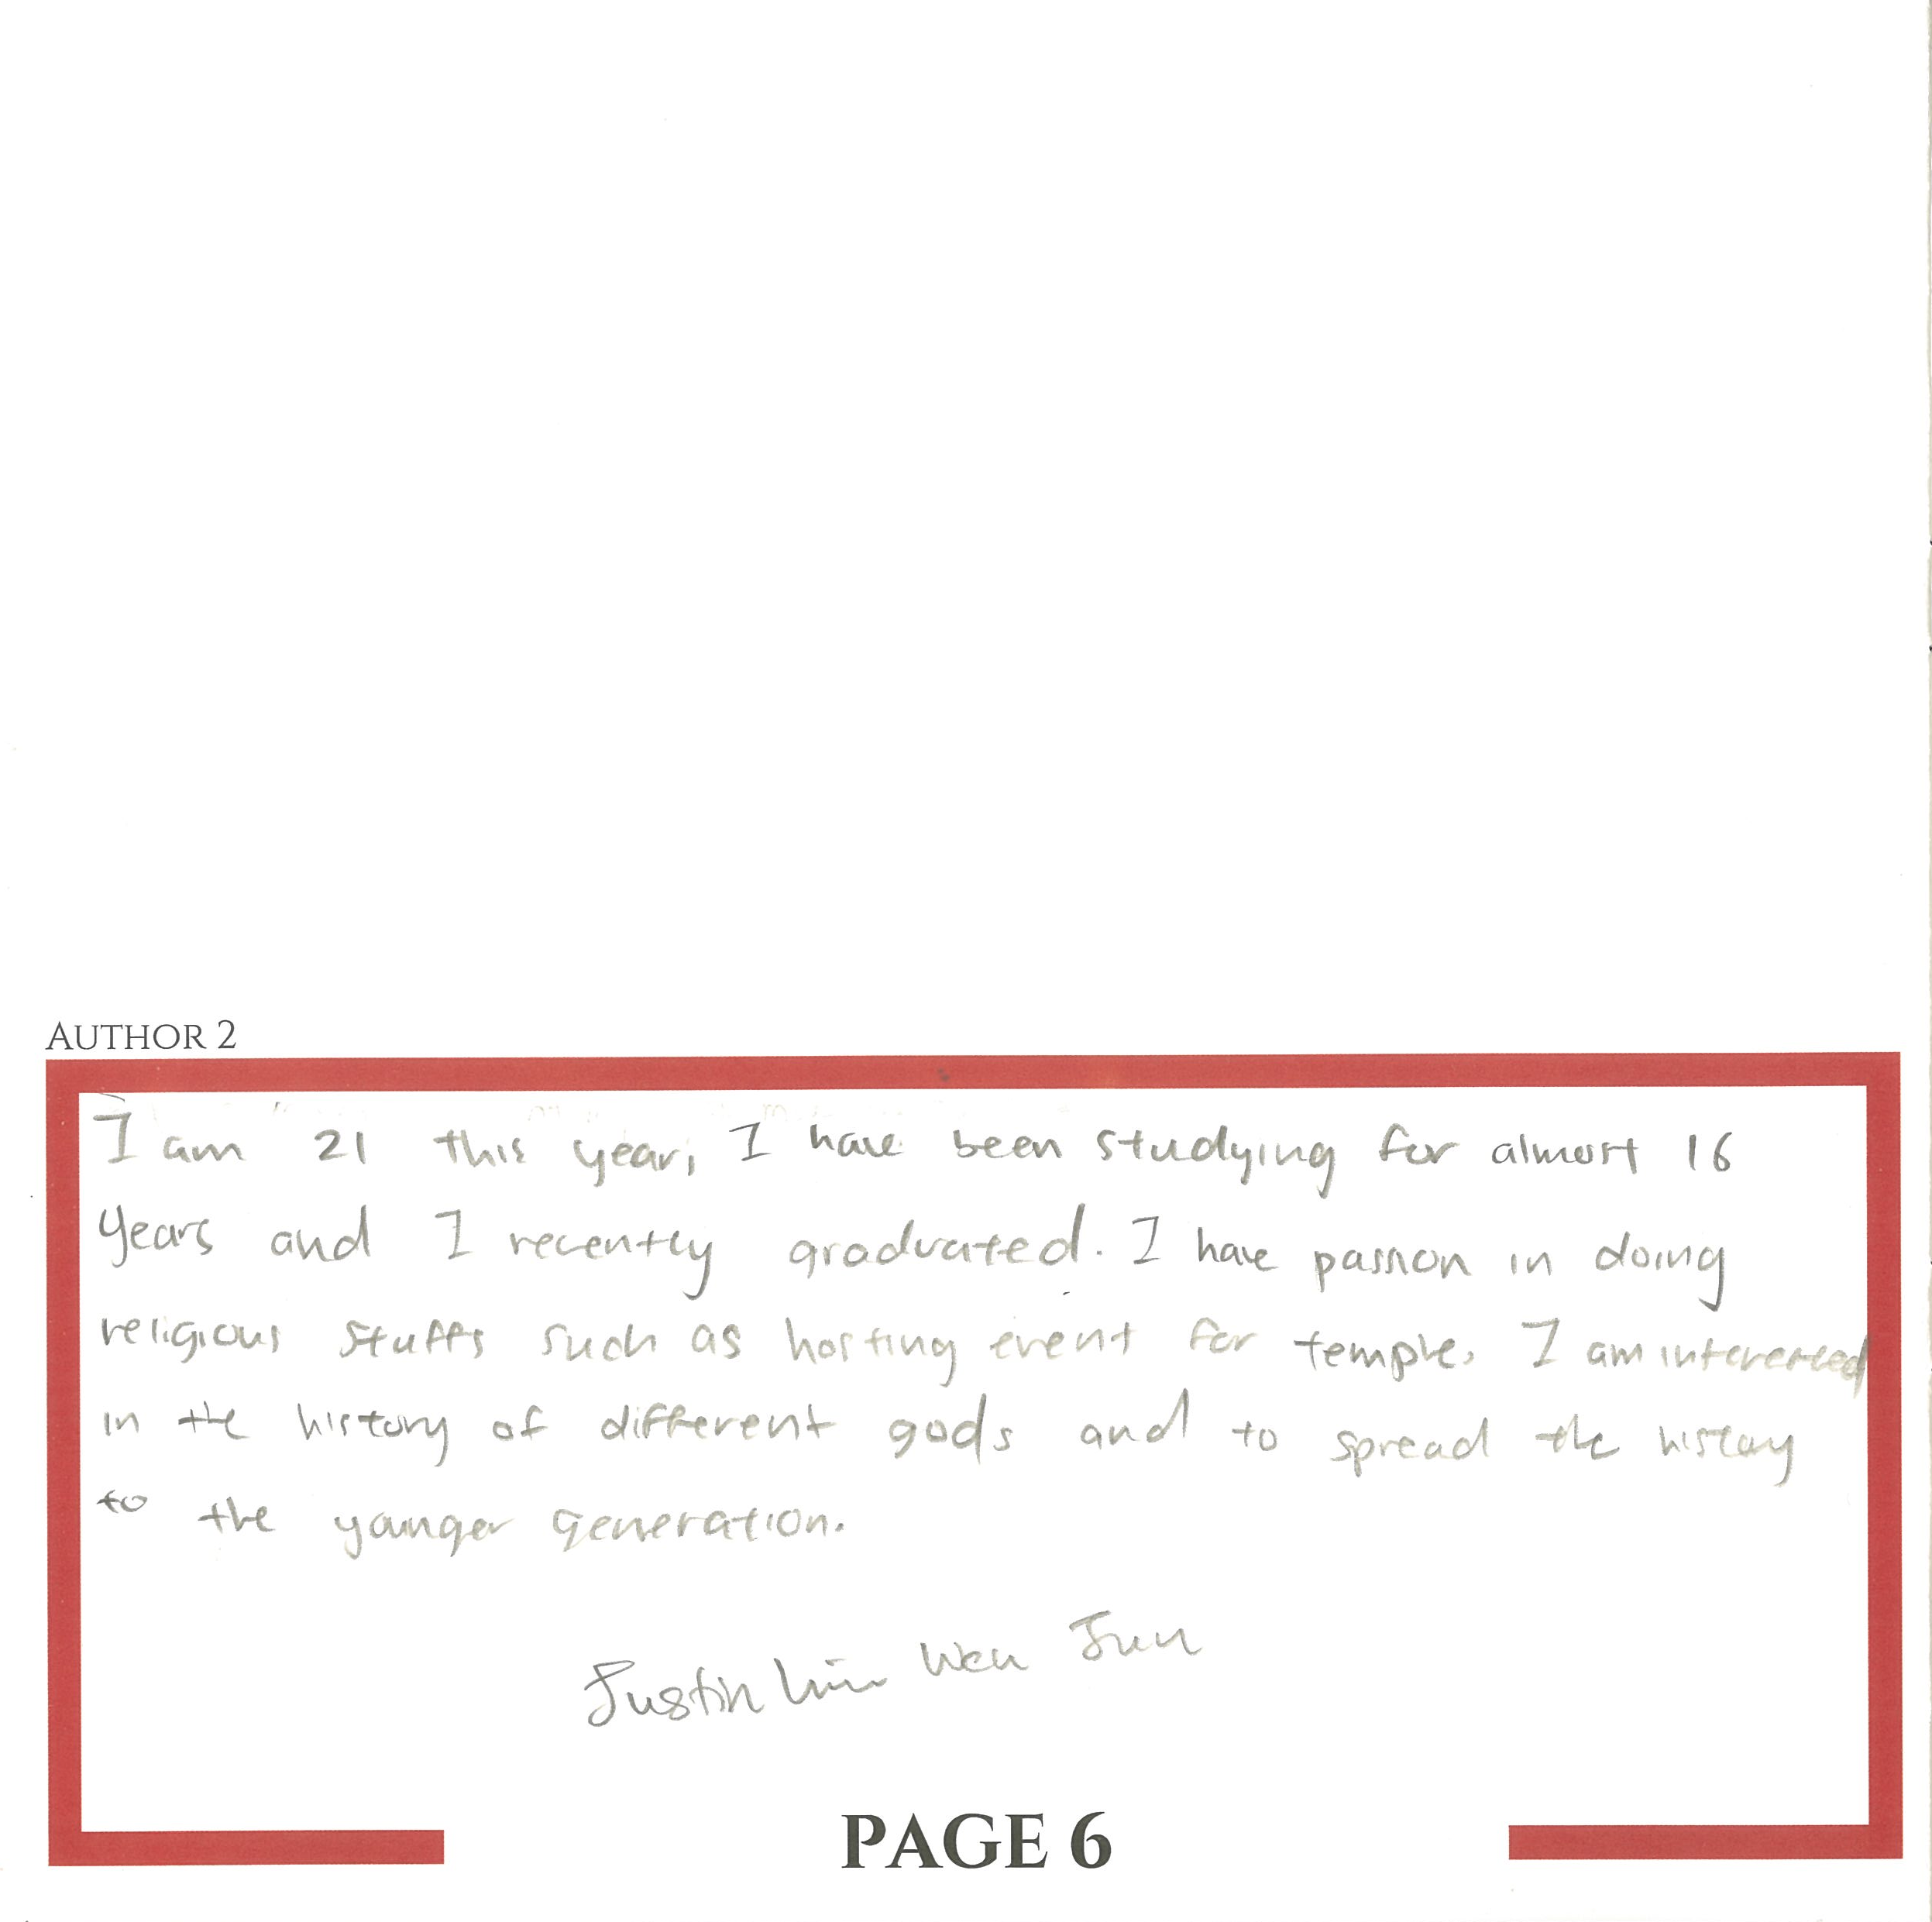 AUTHOR 2
I am 21 this year, I have been studying for almost 16
years and I recently graduated. I have passion in doing
religious stuffs such as hosting event for temple. I am interested
in the history of different gods and to spread the history
to the younger generation.
Justin Lim Wen Jun
PAGE 6